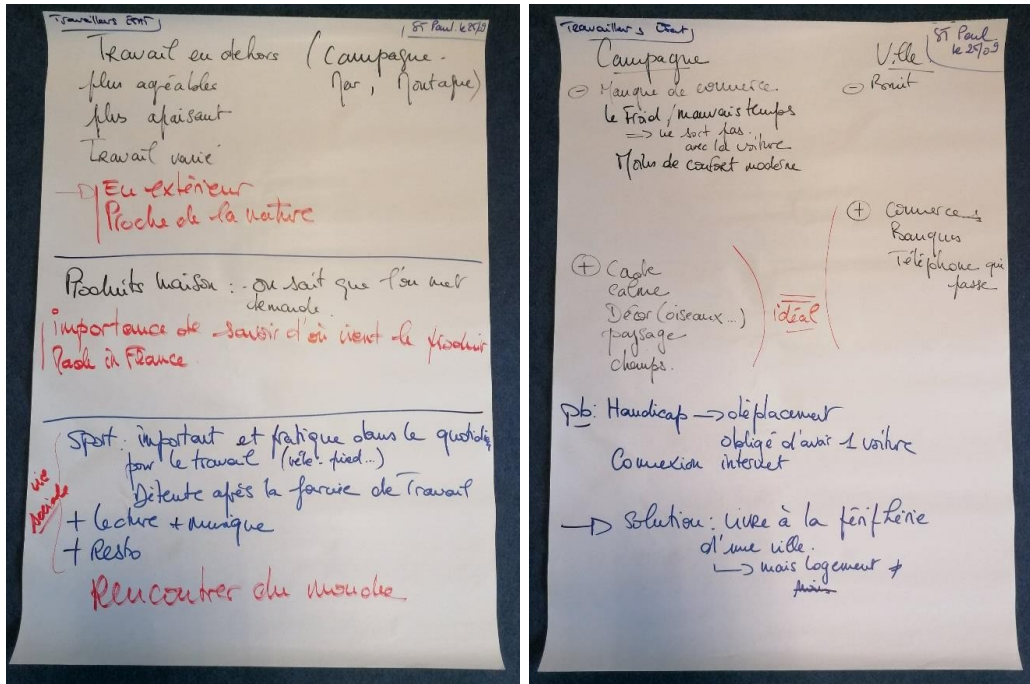 Travailleurs ESAT
ST Paul le 25/09
Travail en dehors (Campagne.
Mer, Montagne)
plus agréables
plus apaisant
Travail varié
En extérieur
Proche de la nature
Produits maison : on sait que l'on met
demande
importance de savoir d'où vient le produit
Made in France
Sport : important et pratique dans le quotidien
pour le travail (vélo - pied...)
Détente après la journée de Travail
+ Lecture + musique
+ Resto
vie
sociale
Rencontrer du monde
Travailleurs Esat
ST Paul
le 25/09
Campagne
Ville
- Manque de commerce
- Bruit
le Froid / mauvais temps
=> ne sort pas.
avec la voiture
Moins de confort moderne
+ Commerces
Banques
Téléphone qui
passe
+ Cadre
calme
Décor (oiseaux...)
paysage
champs.
idéal
pb : Handicap → déplacement
obligé d'avoir 1 voiture
Connexion internet
→ Solution : Vivre à la périphérie
d'une ville.
→ mais logement ≠